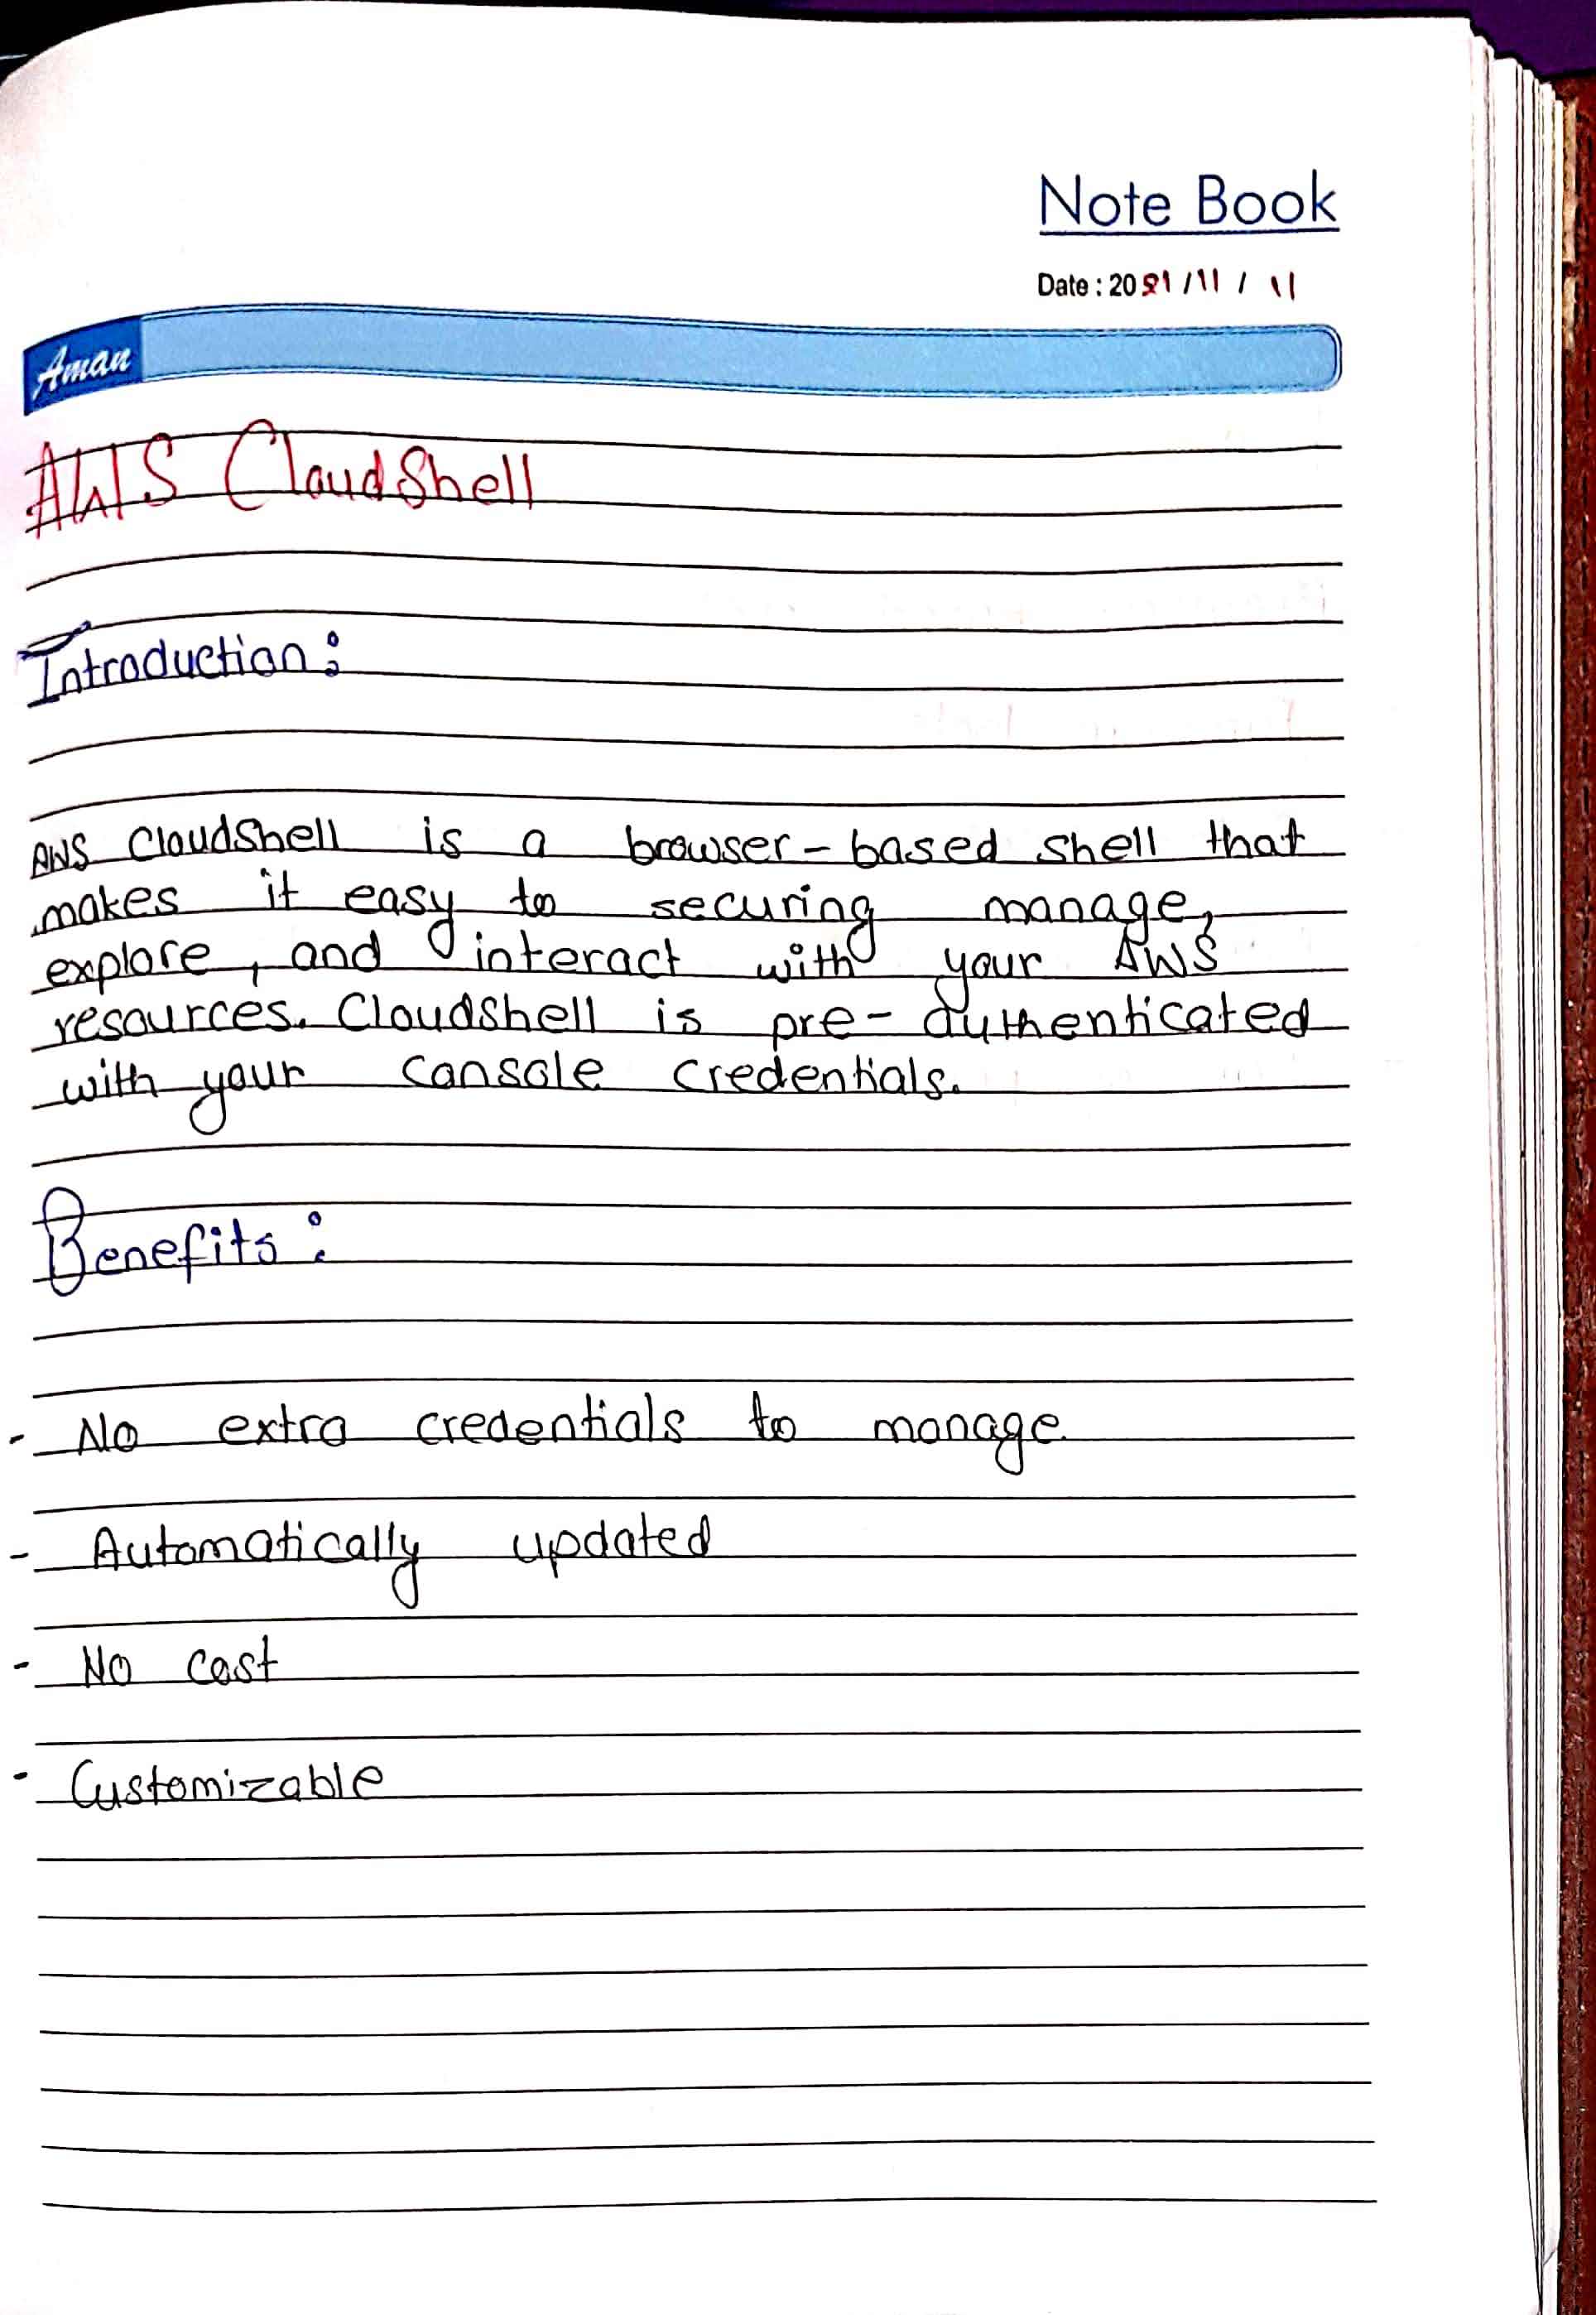 Note Book
Date : 2021 / 11 / 11
Aman
AWS CloudShell
Introduction :
AWS CloudShell is a browser-based shell that
makes it easy to securing manage,
explore, and interact with your AWS
resources. Cloudshell is pre-authenticated
with your console credentials.
Benefits :
- No extra credentials to manage.
- Automatically updated
- No cost
- Customizable